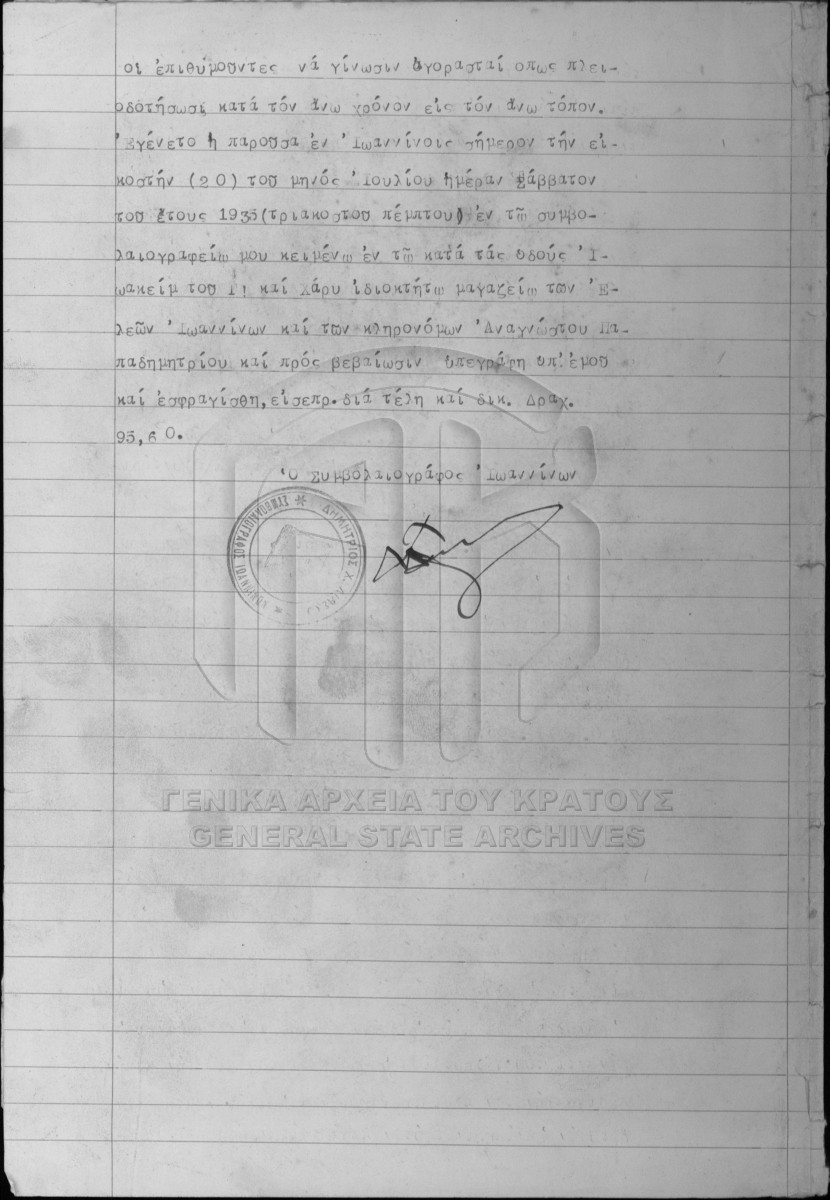 οι ἐπιθύμοῦντες νά γίνωσιν ἀγορασταί οπως πλει-
οδοτήσωσι κατά τόν ἄνω χρόνον εἰς τόν ἄνω τόπον.
Ἐγένετο ἡ παροῦσα ἐν Ἰωαννίνοις σήμερον τήν εἰ-
κοστήν (20) τοῦ μηνός Ἰουλίου ἡμέραν Σάββατον
τοῦ ἔτους 1935(τριακοστοῦ πέμπτου) ἐν τῶ συμβο-
λαιογραφείω μου κειμένω ἐν τῶ κατά τάς ὁδούς Ἰ-
ωακείμ τοῦ Γ! καί Χάρυ ἰδιοκτήτω μαγαζείω τῶν Ἐ-
λεῶν Ἰωαννίνων καί τῶν κληρονόμων Ἀναγνώστου Πα-
παδημητρίου καί πρός βεβαίωσιν ὑπεγράφη ὑπ' ἐμοῦ
καί ἐσφραγίσθη, εἰσεπρ. διά τέλη καί δικ. Δραχ.
95,60.
Ὁ Συμβολαιογράφος Ἰωαννίνων
ΔΗΜΗΤΡΙΟΣ Χ.
ΣΥΜΒΟΛΑΙΟΓΡΑΦΟΣ ΙΩΑΝΝΙΝΩΝ
ΓΕΝΙΚΑ ΑΡΧΕΙΑ ΤΟΥ ΚΡΑΤΟΥΣ
GENERAL STATE ARCHIVES